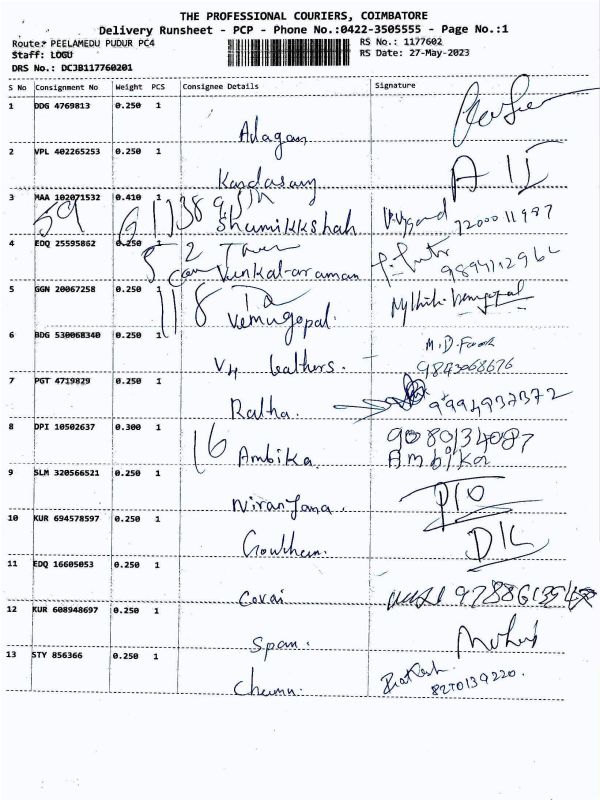 THE PROFESSIONAL COURIERS, COIMBATORE
Delivery Runsheet - PCP - Phone No.:0422-3505555 - Page No.:1
Route: PEELAMEDU PUDUR PC4 RS No.: 1177602
Staff: LOGU RS Date: 27-May-2023
DRS No.: DCJB117760201
S No Consignment No Weight PCS Consignee Details Signature
1 DDG 4769813 0.250 1
Adagan
2 VPL 402265253 0.250 1
Kandasamy
3 MAA 102071532 0.410 1
59 Shamikkshah 7200011987
4 EDQ 25595862 0.250 1
52 Venkat-araman
5 GGN 20067258 0.250 1
118 Venugopal.
6 BDG 530068340 0.250 1 M.D.
V4 leathers. 9843068676
7 PGT 4719829 0.250 1
Ratha. 9994937372
8 DPI 10502637 0.300 1 9080134087
16 Ambika Ambika
9 SLM 320566521 0.250 1
Niranjana.
10 KUR 694578597 0.250 1
Gowtham.
11 EDQ 16605053 0.250 1
Covai
12 KUR 608948697 0.250 1
Span.
13 STY 856366 0.250 1
8270139220.